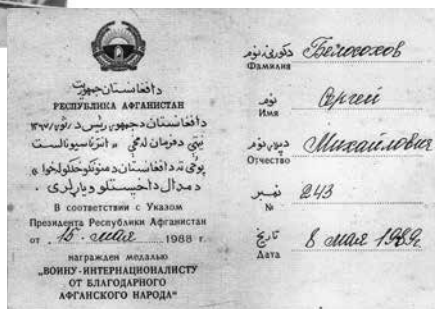 دافغانستان جمهوریت
РЕСПУБЛИКА АФГАНИСТАН
دافغانستان دجمهور رئیس د
نیټې دفرمان له مخې
В соответствии с Указом
Президента Республики Афганистан
от 15 мая 1988 г.
награжден медалью
„ВОИНУ-ИНТЕРНАЦИОНАЛИСТУ
ОТ БЛАГОДАРНОГО
АФГАНСКОГО НАРОДА"
دکورنۍ نوم
Фамилия Белосохов
نوم
Имя Сергей
دپلار نوم
Отчество Михайлович
نمبر
№ 243
تاریخ
Дата 8 мая 1989г.